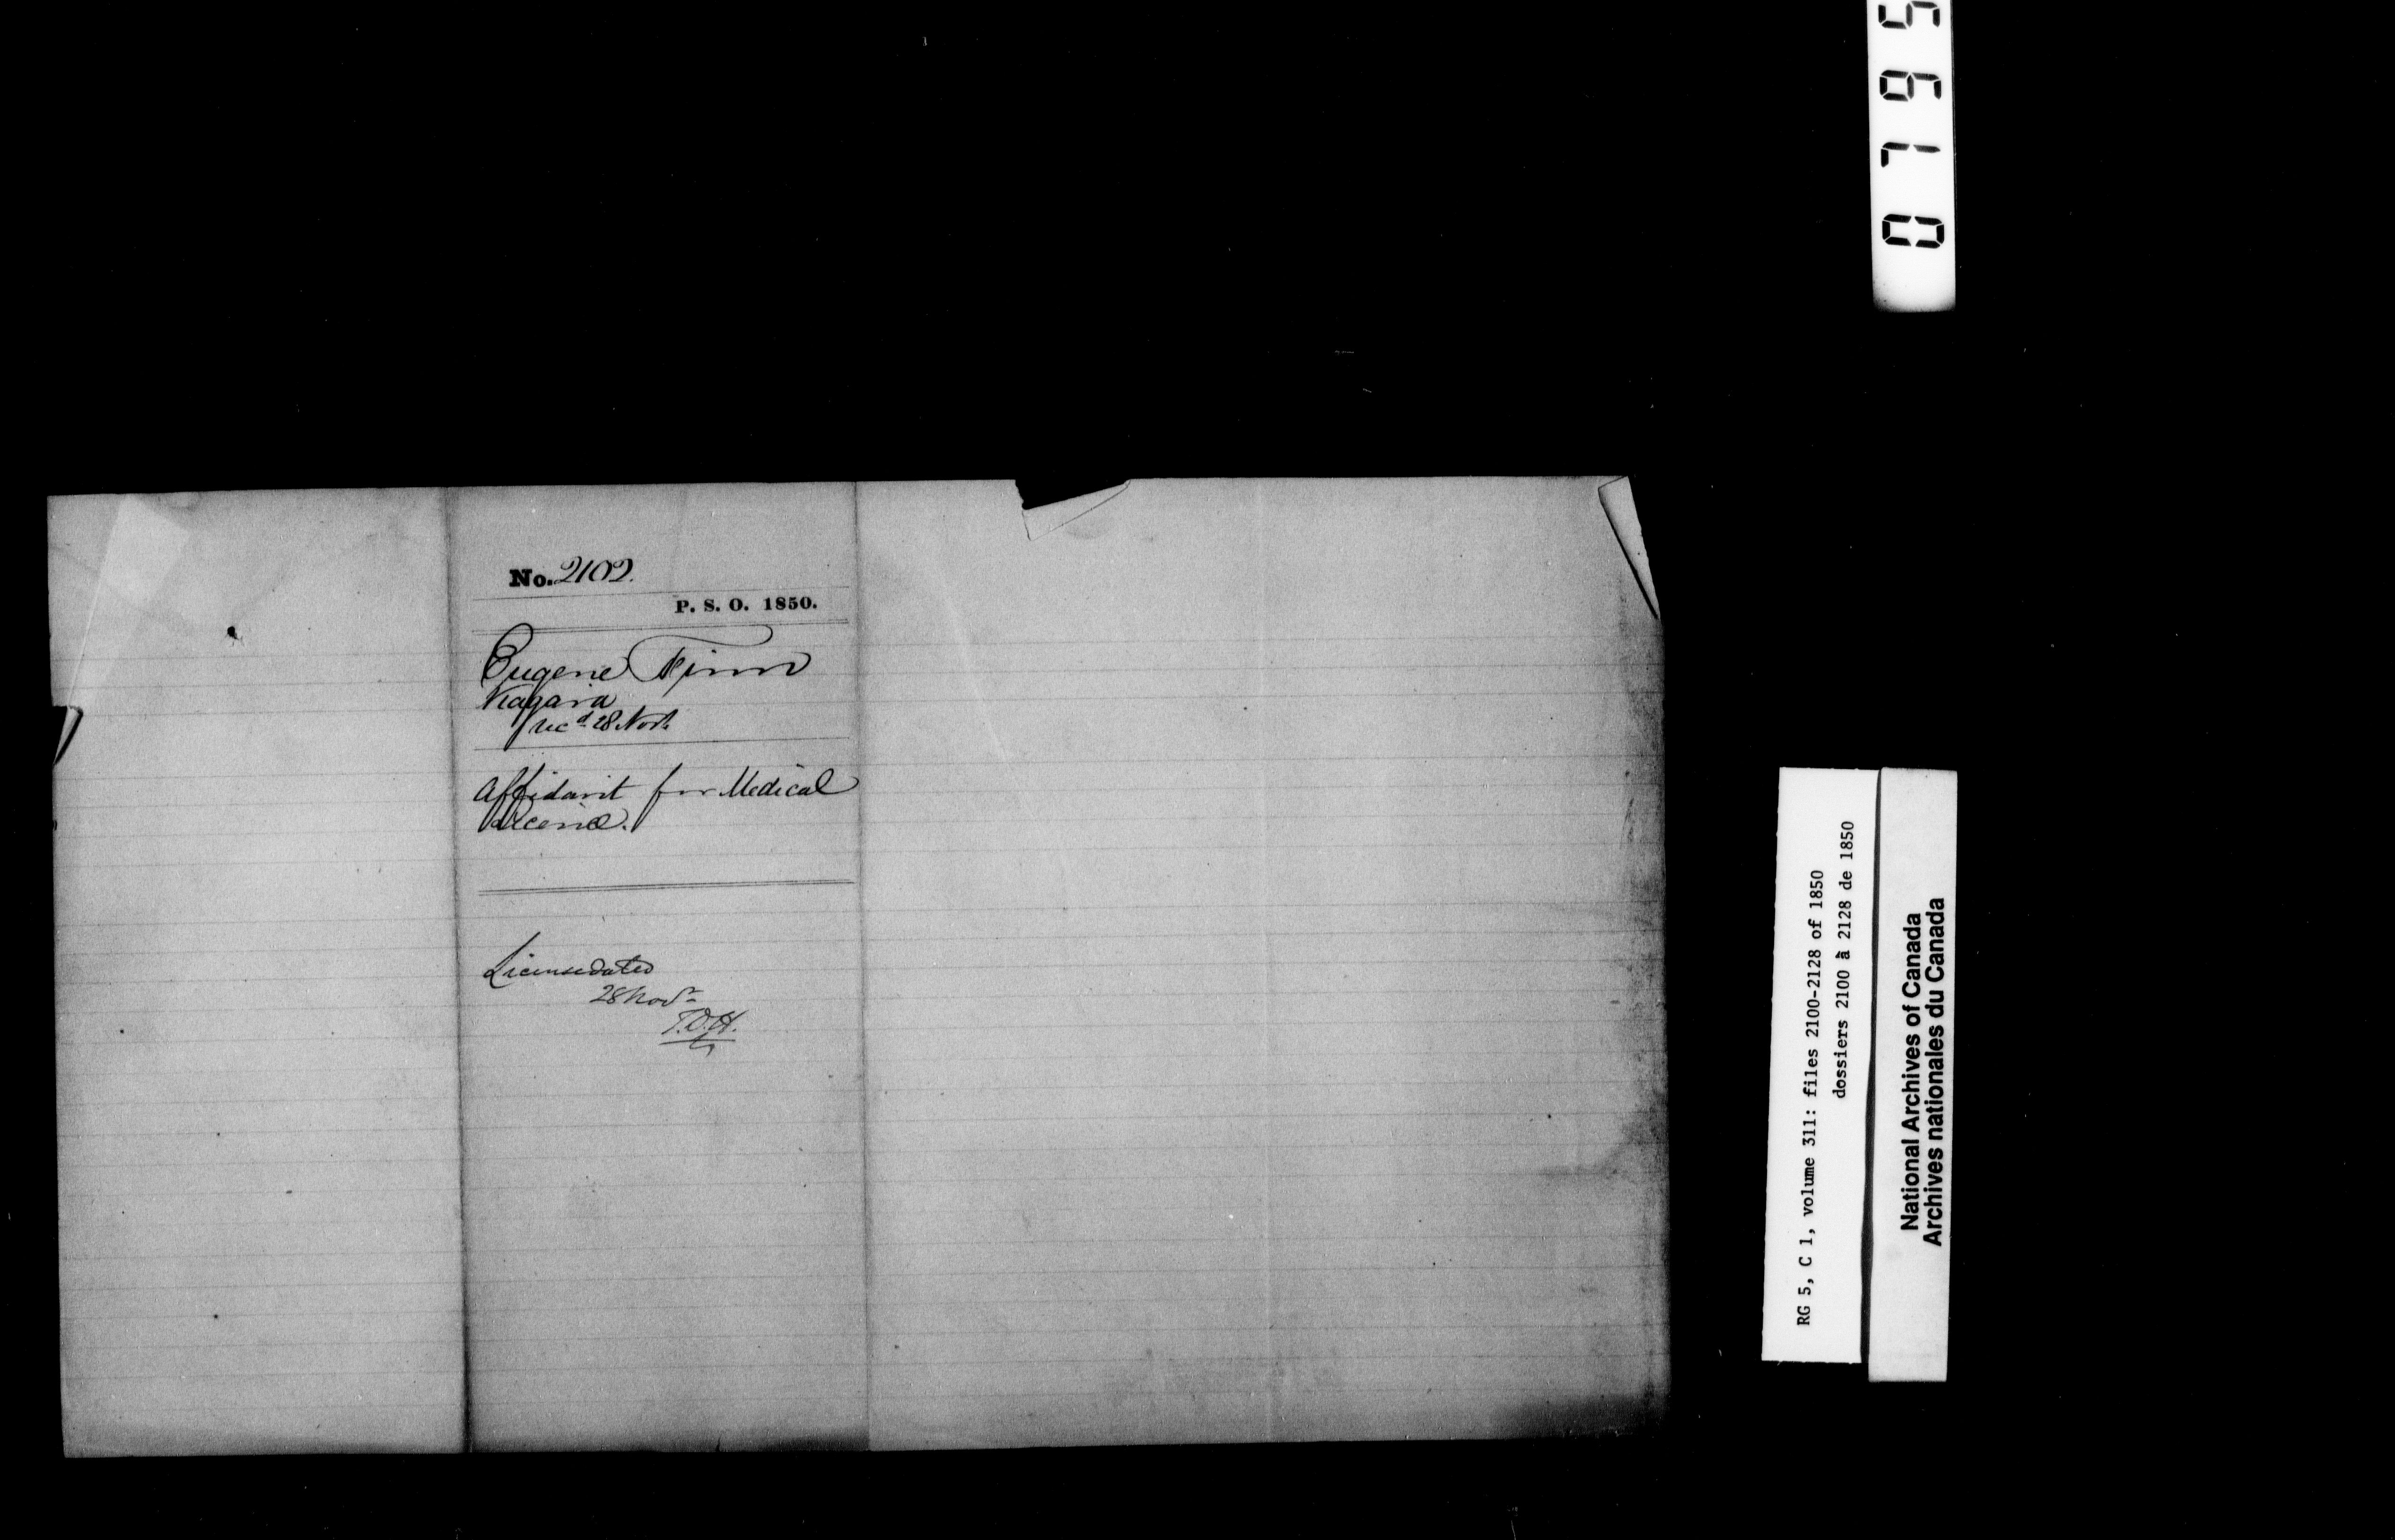 No. 2102.
P. S. O. 1850.
Eugene Finn
Niagara
recd 28 Novr.
Affidavit for Medical
Licence.
License dated
28 Novr
T.D.H.
0795
RG 5, C 1, volume 311: files 2100-2128 of 1850
dossiers 2100 à 2128 de 1850
National Archives of Canada
Archives nationales du Canada